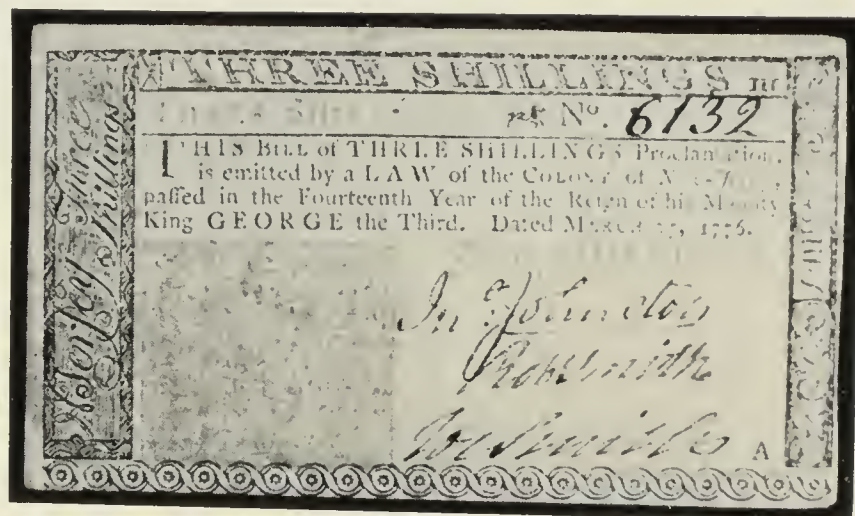 THREE SHILLINGS III
No. 6132
THIS BILL of THREE SHILLINGS Proclamation,
is emitted by a LAW of the COLONY of
paſſed in the Fourteenth Year of the Reign of his Majeſty
King GEORGE the Third. Dated MARCH 1776.
Jn.º Johnston
Robt Smith
Jos Smith
A
Three
Shillings